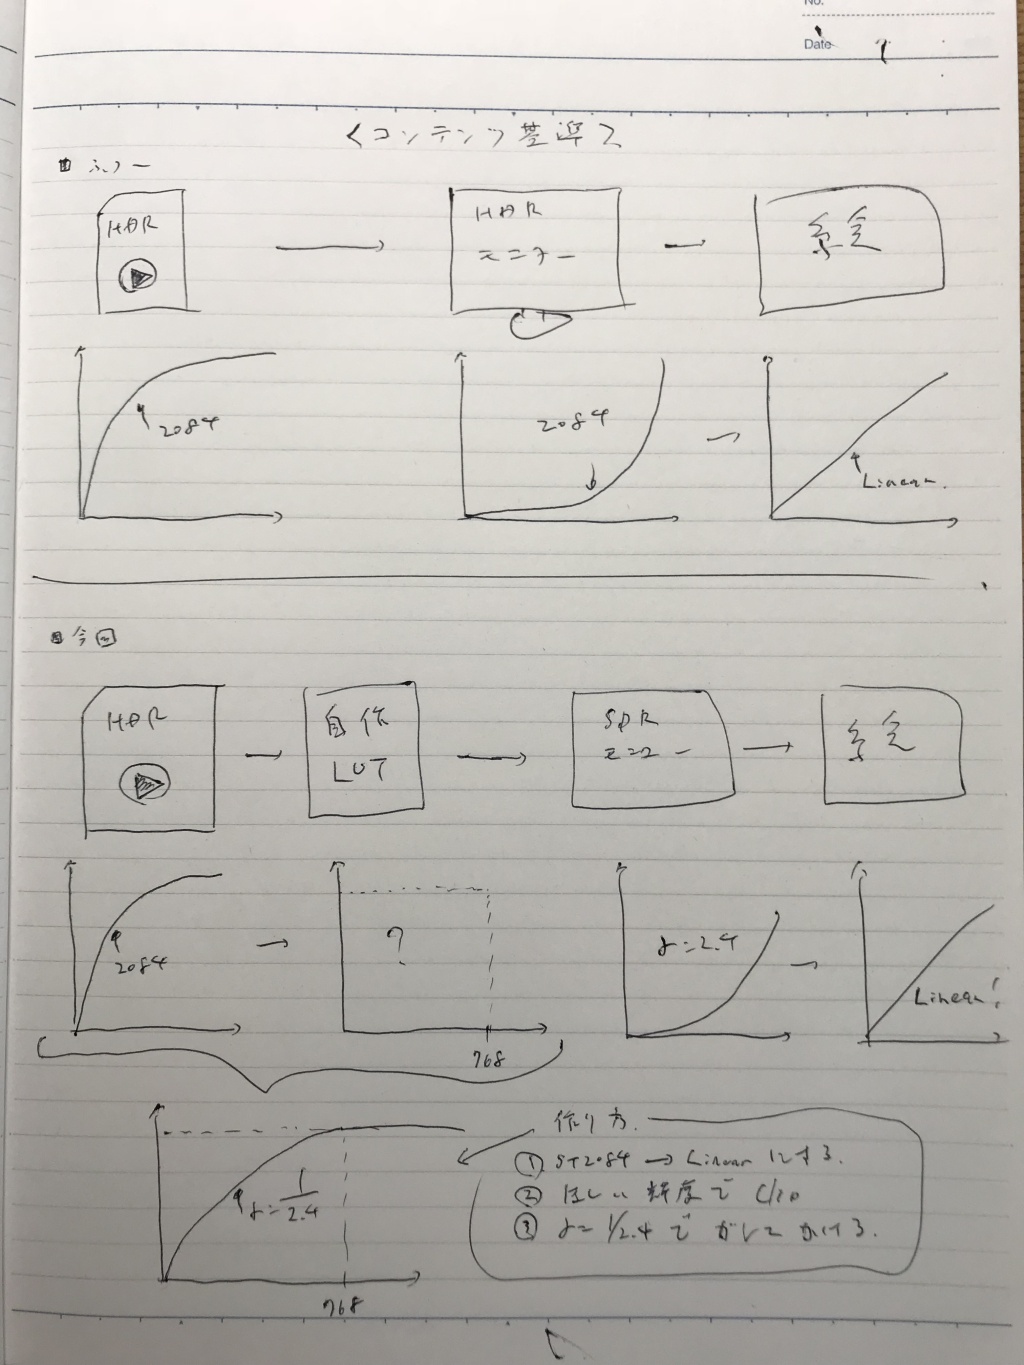 No.
Date
<コンテンツ基準>
ふつー
HDR
HDR
モニター
系全
2084
2084
Linear.
今回
HDR
自作
LUT
SDR
モニター
系全
2084
?
768
γ=2.4
Linear!
γ=1/2.4
768
作り方.
① ST2084 → Linear にする.
② ほしい 輝度で Clip
③ γ=1/2.4で ガンマ かける.